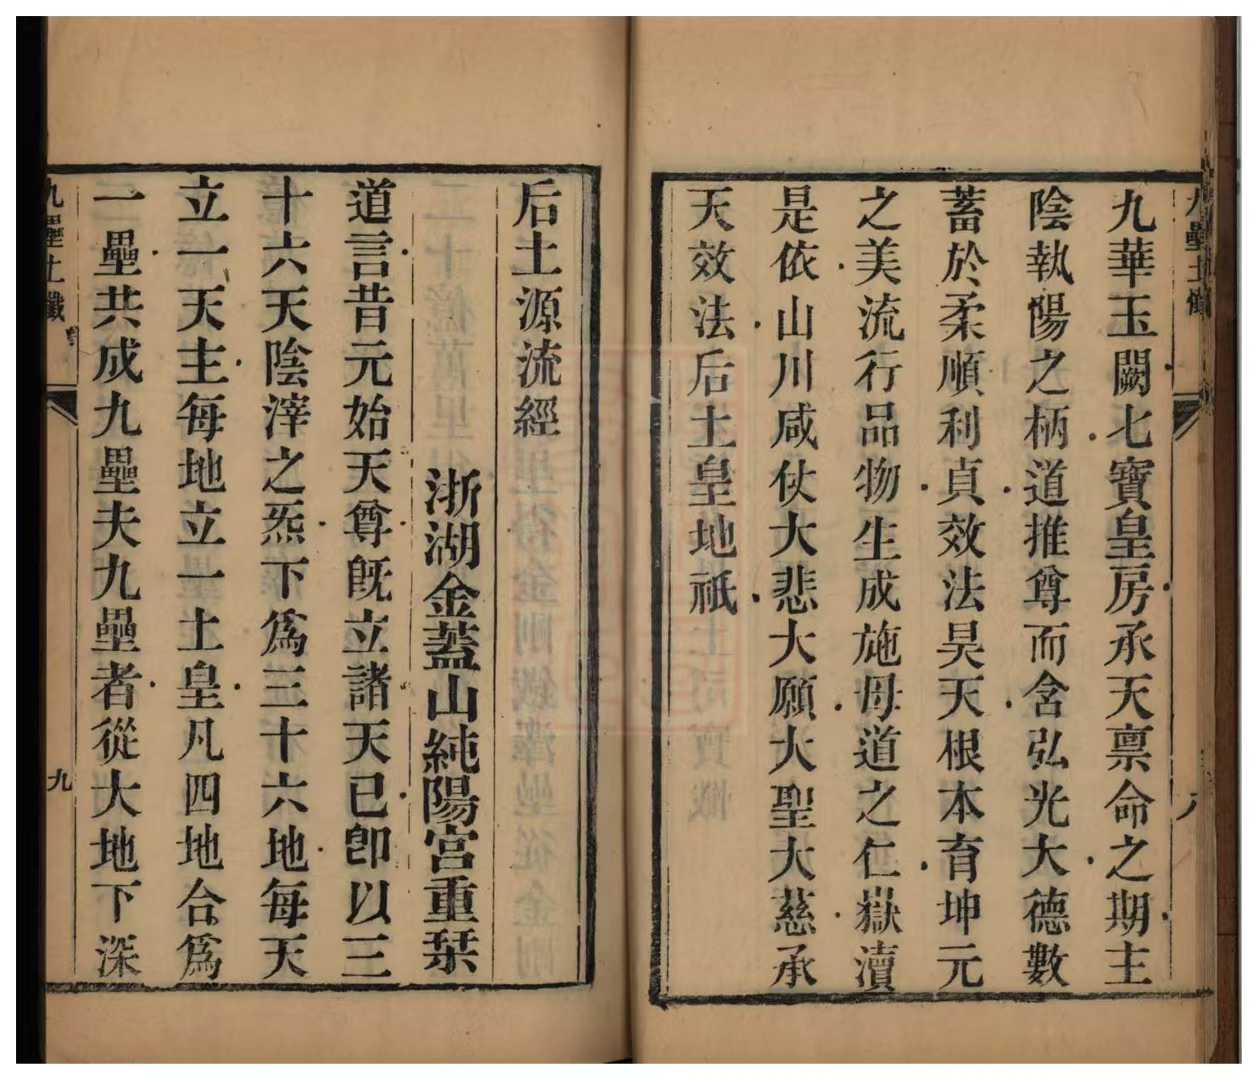 九華玉闕七寶皇房承天禀命之期主
陰執陽之柄道推尊而含弘光大德數
蓄於柔順利貞效法昊天根本育坤元
之美流行品物生成施母道之仁嶽瀆
是依山川咸仗大悲大願大聖大慈承
天效法后土皇地祇
后土源流經
浙湖金蓋山純陽宮重栞
道言昔元始天尊旣立諸天已卽以三
十六天陰滓之炁下爲三十六地每天
立一天主每地立一土皇凡四地合爲
一壘共成九壘夫九壘者從大地下深
九壘土懺
九